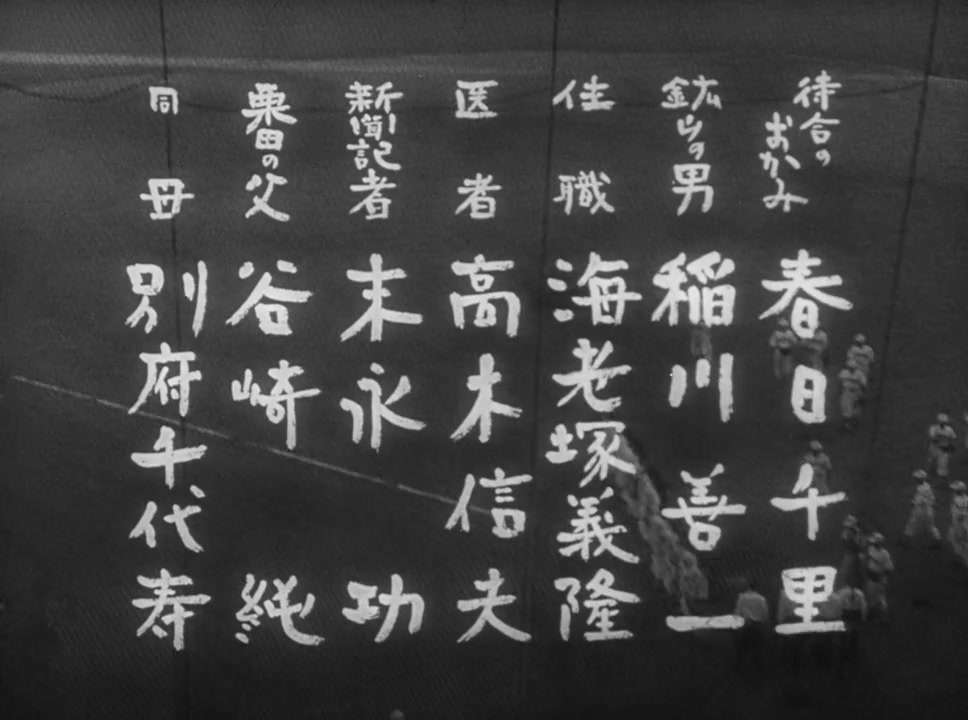 待合のおかみ 春日千里
鉱山の男 稲川善一
住職 海老塚義隆
医者 高木信夫
新聞記者 末永功
栗田の父 谷崎純
同母 別府千代寿